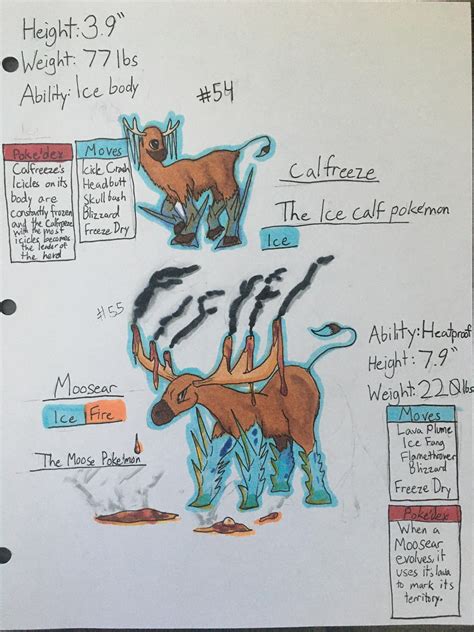 Height: 3.9"
Weight: 77 lbs
Ability: Ice body
#54
Poke'dex
Calfreeze's
Icicles on its
body are
constantly frozen
and the Calfreeze
with the most
icicles becomes
the leader of
the herd
Moves
Icicle Crash
Headbutt
Skull bash
Blizzard
Freeze Dry
Calfreeze
The Ice calf poke'mon
Ice
#55
Moosear
Ice Fire
The Moose Poke'mon
Ability: Heatproof
Height: 7.9"
Weight: 220 lbs
Moves
Lava Plume
Ice Fang
Flamethrower
Blizzard
Freeze Dry
Poke'dex
When a
Moosear
evolves, it
uses it's lava
to mark its
territory.